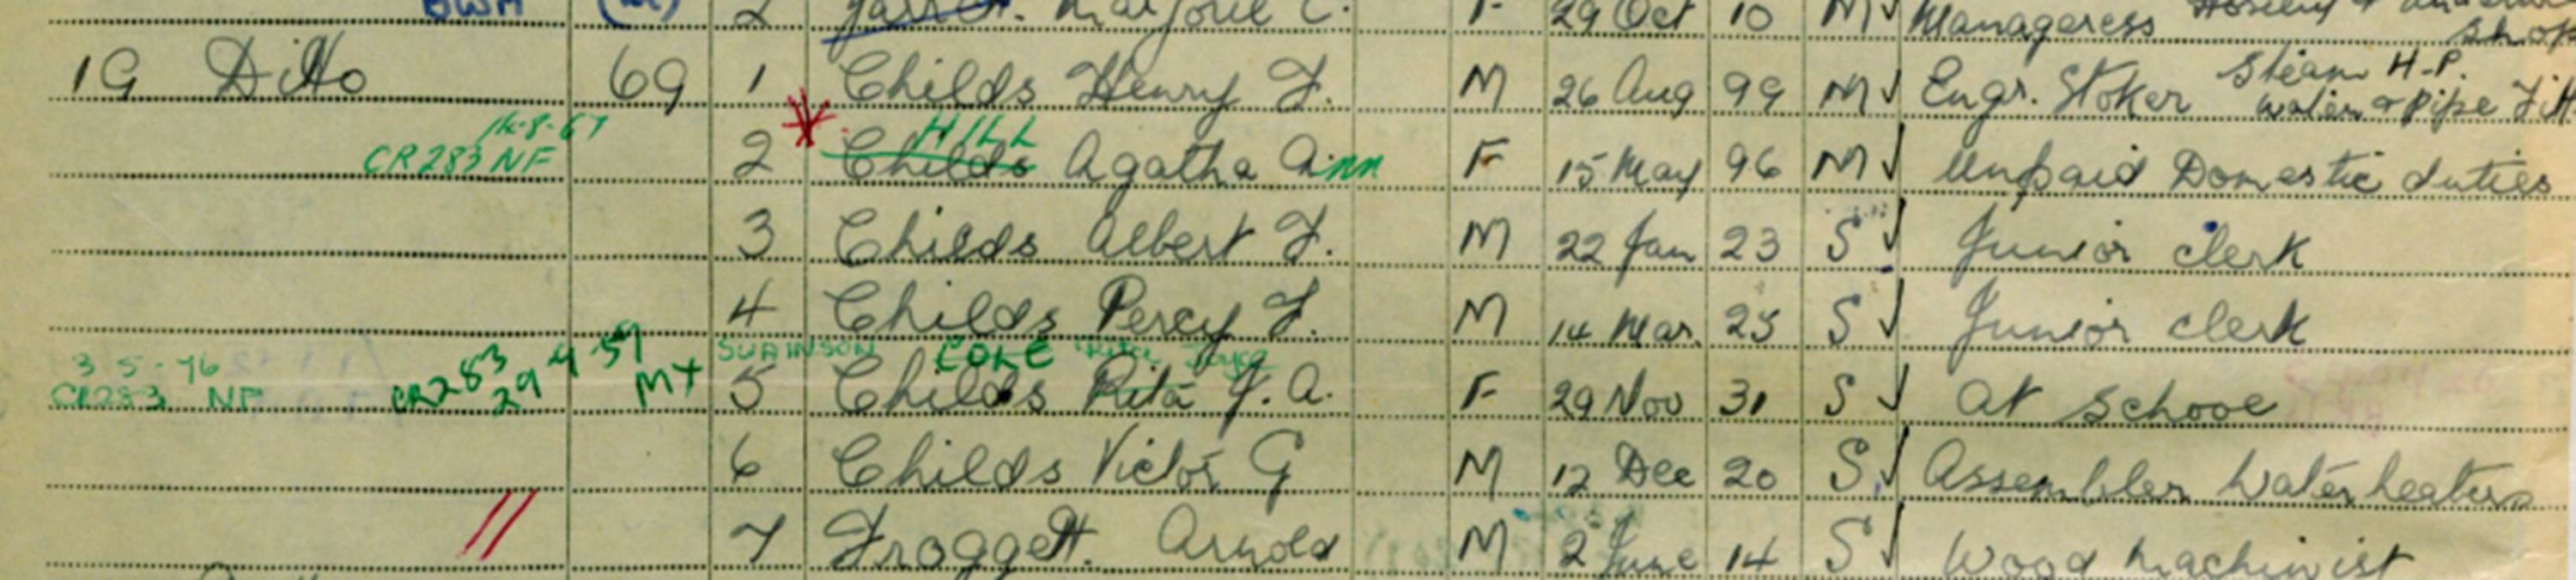 BWH 2 Garrett. Marjorie C. F 29 Oct 10 M✓ Manageress Hosiery & shop
19 Ditto 69 1 Childs Henry F. M 26 Aug 99 M✓ Engr. Stoker Steam H.P. Water & Pipe
14-8-67 HILL
CR283 NF 2 Childs Agatha Ann F 15 May 96 M✓ Unpaid Domestic duties
3 Childs Albert F. M 22 Jan 23 S✓ Junior clerk
4 Childs Percy F. M 14 Mar. 25 S✓ Junior clerk
3-5-76 CR283 29-4-57 MX SWAINSON COLE Rita Joyce
CR283 NF 5 Childs Rita J. A. F 29 Nov 31 S✓ At School
6 Childs Victor G M 12 Dec 20 S✓ Assembler Water heaters
7 Froggett. Arnold M 2 June 14 S✓ Wood Machinist